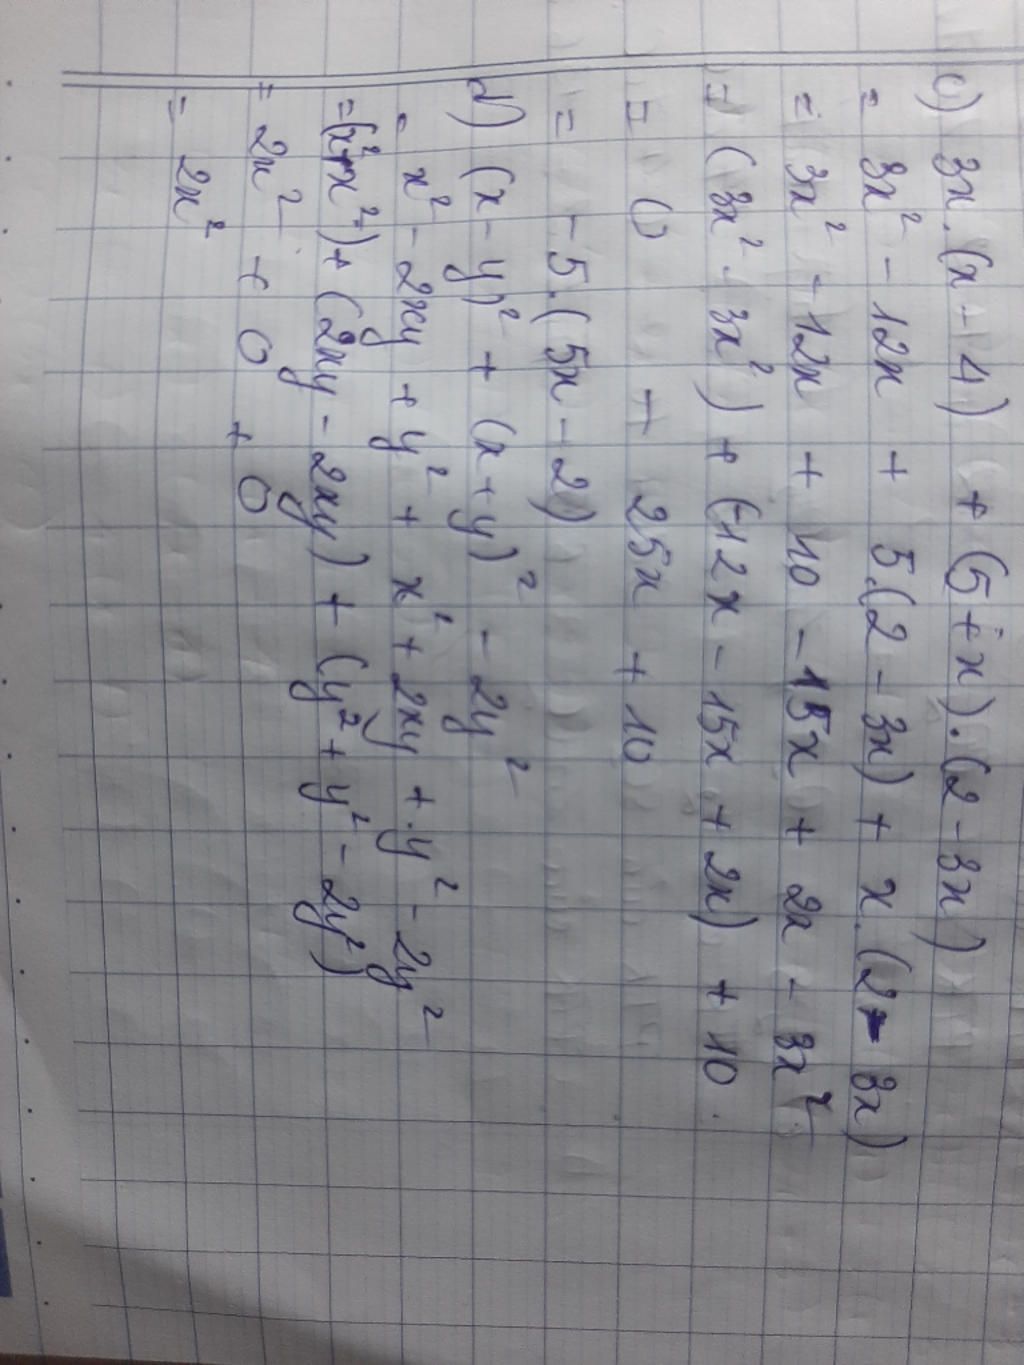 c) 3x.(x-4) + (5+x).(2-3x)
= 3x² - 12x + 5.(2-3x) + x.(2-3x)
= 3x² - 12x + 10 - 15x + 2x - 3x²
= (3x² - 3x²) + (-12x - 15x + 2x) + 10
= 0 - 25x + 10
= -5.(5x-2)
d) (x-y)² + (x+y)² - 2y²
= x² - 2xy + y² + x² + 2xy + y² - 2y²
= (x²+x²) + (2xy - 2xy) + (y² + y² - 2y²)
= 2x² + 0 + 0
= 2x²